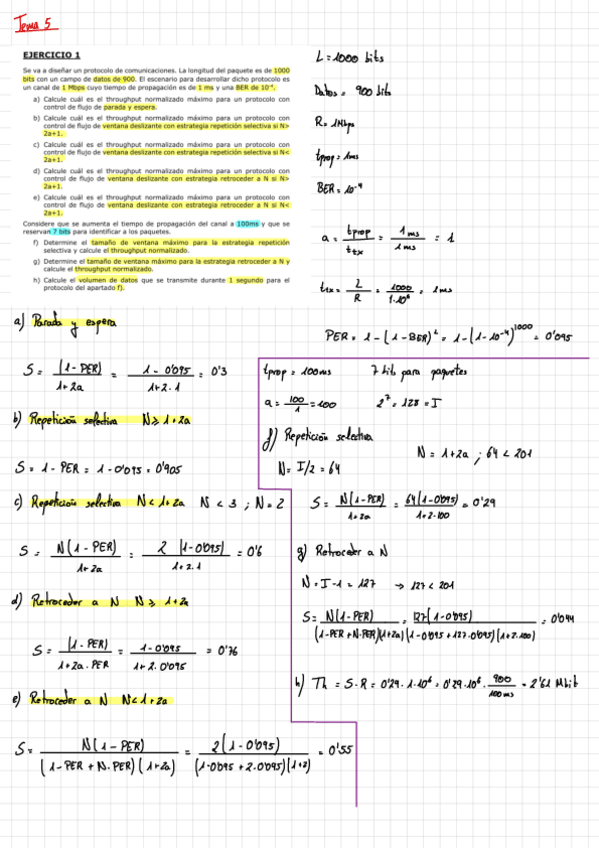 Tema 5
EJERCICIO 1
Se va a diseñar un protocolo de comunicaciones. La longitud del paquete es de 1000
bits con un campo de datos de 900. El escenario para desarrollar dicho protocolo es
un canal de 1 Mbps cuyo tiempo de propagación es de 1 ms y una BER de 10⁻⁴.
a) Calcule cuál es el throughput normalizado máximo para un protocolo con
control de flujo de parada y espera.
b) Calcule cuál es el throughput normalizado máximo para un protocolo con
control de flujo de ventana deslizante con estrategia repetición selectiva si N>
2a+1.
c) Calcule cuál es el throughput normalizado máximo para un protocolo con
control de flujo de ventana deslizante con estrategia repetición selectiva si N<
2a+1.
d) Calcule cuál es el throughput normalizado máximo para un protocolo con
control de flujo de ventana deslizante con estrategia retroceder a N si N>
2a+1.
e) Calcule cuál es el throughput normalizado máximo para un protocolo con
control de flujo de ventana deslizante con estrategia retroceder a N si N<
2a+1.
Considere que se aumenta el tiempo de propagación del canal a 100ms y que se
reservan 7 bits para identificar a los paquetes.
f) Determine el tamaño de ventana máximo para la estrategia repetición
selectiva y calcule el throughput normalizado.
g) Determine el tamaño de ventana máximo para la estrategia retroceder a N y
calcule el throughput normalizado.
h) Calcule el volumen de datos que se transmite durante 1 segundo para el
protocolo del apartado f).
L = 1000 bits
Datos = 900 bits
R = 1Mbps
tprop = 1ms
BER = 10⁻⁴
a = tprop / ttx = 1ms / 1ms = 1
ttx = L / R = 1000 / 1·10⁶ = 1ms
PER = 1 - (1 - BER)ᴸ = 1 - (1 - 10⁻⁴)¹⁰⁰⁰ = 0'095
a) Parada y espera
S = (1 - PER) / 1 + 2a = 1 - 0'095 / 1 + 2·1 = 0'3
b) Repetición selectiva N ≥ 1 + 2a
S = 1 - PER = 1 - 0'095 = 0'905
c) Repetición selectiva N < 1 + 2a N < 3 ; N = 2
S = N(1 - PER) / 1 + 2a = 2(1 - 0'095) / 1 + 2·1 = 0'6
d) Retroceder a N N ≥ 1 + 2a
S = (1 - PER) / 1 + 2a·PER = 1 - 0'095 / 1 + 2·0'095 = 0'76
e) Retroceder a N N < 1 + 2a
S = N(1 - PER) / (1 - PER + N·PER)(1 + 2a) = 2(1 - 0'095) / (1 - 0'095 + 2·0'095)(1 + 2) = 0'55
tprop = 100ms 7 bits para paquetes
a = 100 / 1 = 100 2⁷ = 128 = I
f) Repetición selectiva
N = I/2 = 64 N = 1 + 2a ; 64 < 201
S = N(1 - PER) / 1 + 2a = 64(1 - 0'095) / 1 + 2·100 = 0'29
g) Retroceder a N
N = I - 1 = 127 → 127 < 201
S = N(1 - PER) / (1 - PER + N·PER)(1 + 2a) = 127(1 - 0'095) / (1 - 0'095 + 127·0'095)(1 + 2·100) = 0'044
h) Th = S·R = 0'29·1·10⁶ = 0'29·10⁶ · 900 / 100ms = 2'61 Mbit